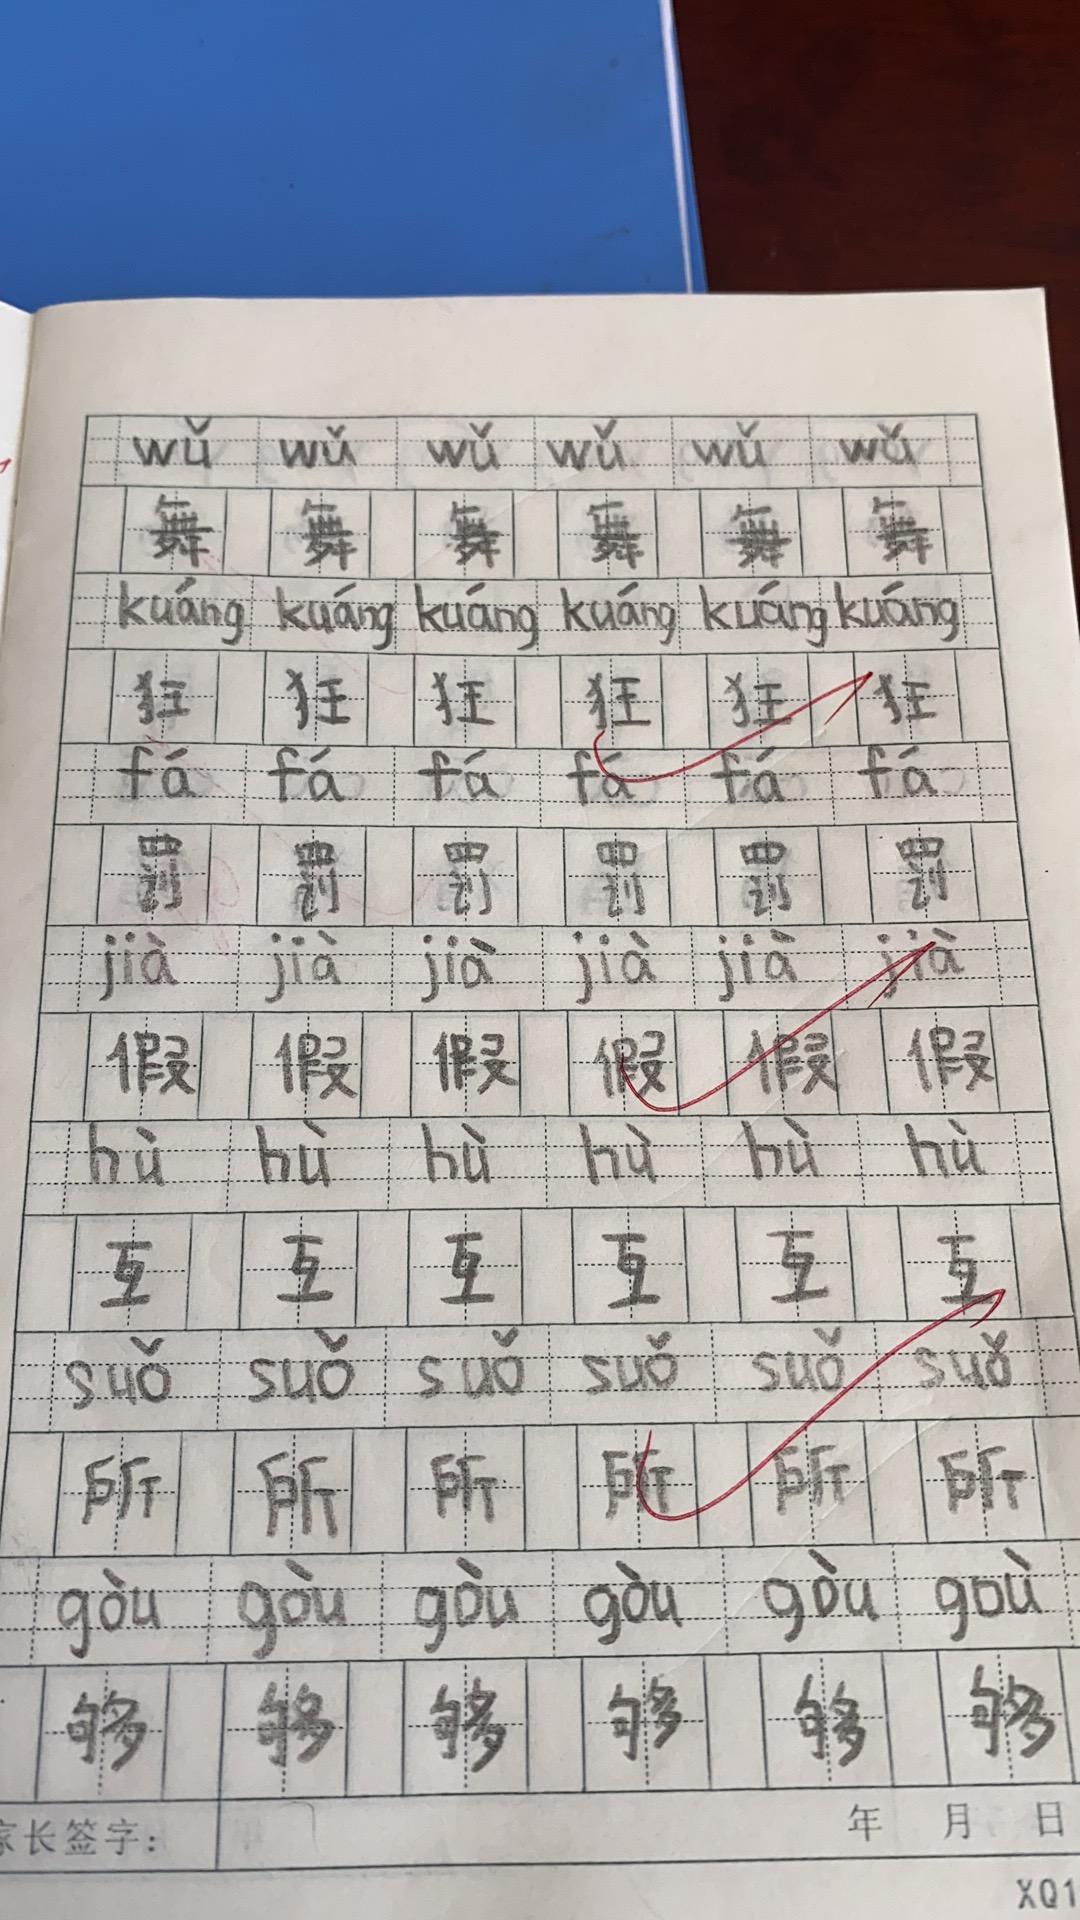 wǔ wǔ wǔ wǔ wǔ wǔ
舞 舞 舞 舞 舞 舞
kuáng kuáng kuáng kuáng kuáng kuáng
狂 狂 狂 狂 狂 狂
fá fá fá fá fá fá
罚 罚 罚 罚 罚 罚
jià jià jià jià jià jià
假 假 假 假 假 假
hù hù hù hù hù hù
互 互 互 互 互 互
suǒ suǒ suǒ suǒ suǒ suǒ
所 所 所 所 所 所
gòu gòu gòu gòu gòu goù
够 够 够 够 够 够
家长签字: 年 月 日
XQ1